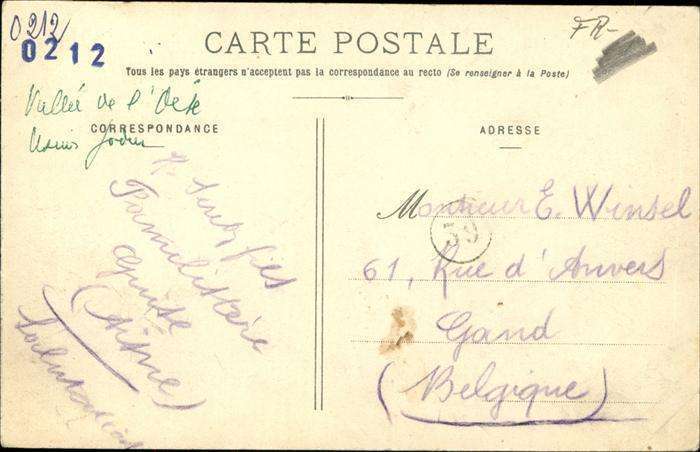 0212
0212
FR-
CARTE POSTALE
Tous les pays étrangers n'acceptent pas la correspondance au recto (Se renseigner à la Poste)
Vallée de l'
CORRESPONDANCE
ADRESSE
fils
Familistère
Guise
(Aisne)
Monsieur E. Winsel
39
61, Rue d'Anvers
Gand
(Belgique)